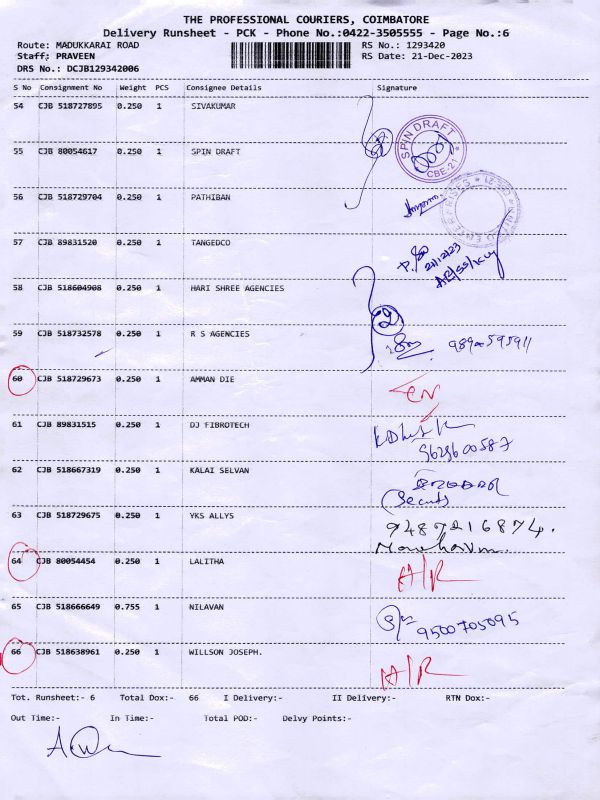 THE PROFESSIONAL COURIERS, COIMBATORE
Delivery Runsheet - PCK - Phone No.:0422-3505555 - Page No.:6
Route: MADUKKARAI ROAD RS No.: 1293420
Staff: PRAVEEN RS Date: 21-Dec-2023
DRS No.: DCJB129342006
S No Consignment No Weight PCS Consignee Details Signature
54 CJB 518727895 0.250 1 SIVAKUMAR
55 CJB 80054617 0.250 1 SPIN DRAFT
SPIN DRAFT CBE-21
56 CJB 518729704 0.250 1 PATHIBAN
ENTERPRISES
57 CJB 89831520 0.250 1 TANGEDCO
21/12/23
58 CJB 518604908 0.250 1 HARI SHREE AGENCIES
2
59 CJB 518732578 0.250 1 R S AGENCIES
60 CJB 518729673 0.250 1 AMMAN DIE
61 CJB 89831515 0.250 1 DJ FIBROTECH
9629600587
62 CJB 518667319 0.250 1 KALAI SELVAN
63 CJB 518729675 0.250 1 YKS ALLYS 9487216874.
64 CJB 80054454 0.250 1 LALITHA A/R
65 CJB 518666649 0.755 1 NILAVAN
9500705095
66 CJB 518638961 0.250 1 WILLSON JOSEPH. A/R
Tot. Runsheet:- 6 Total Dox:- 66 I Delivery:- II Delivery:- RTN Dox:-
Out Time:- In Time:- Total POD:- Delvy Points:-